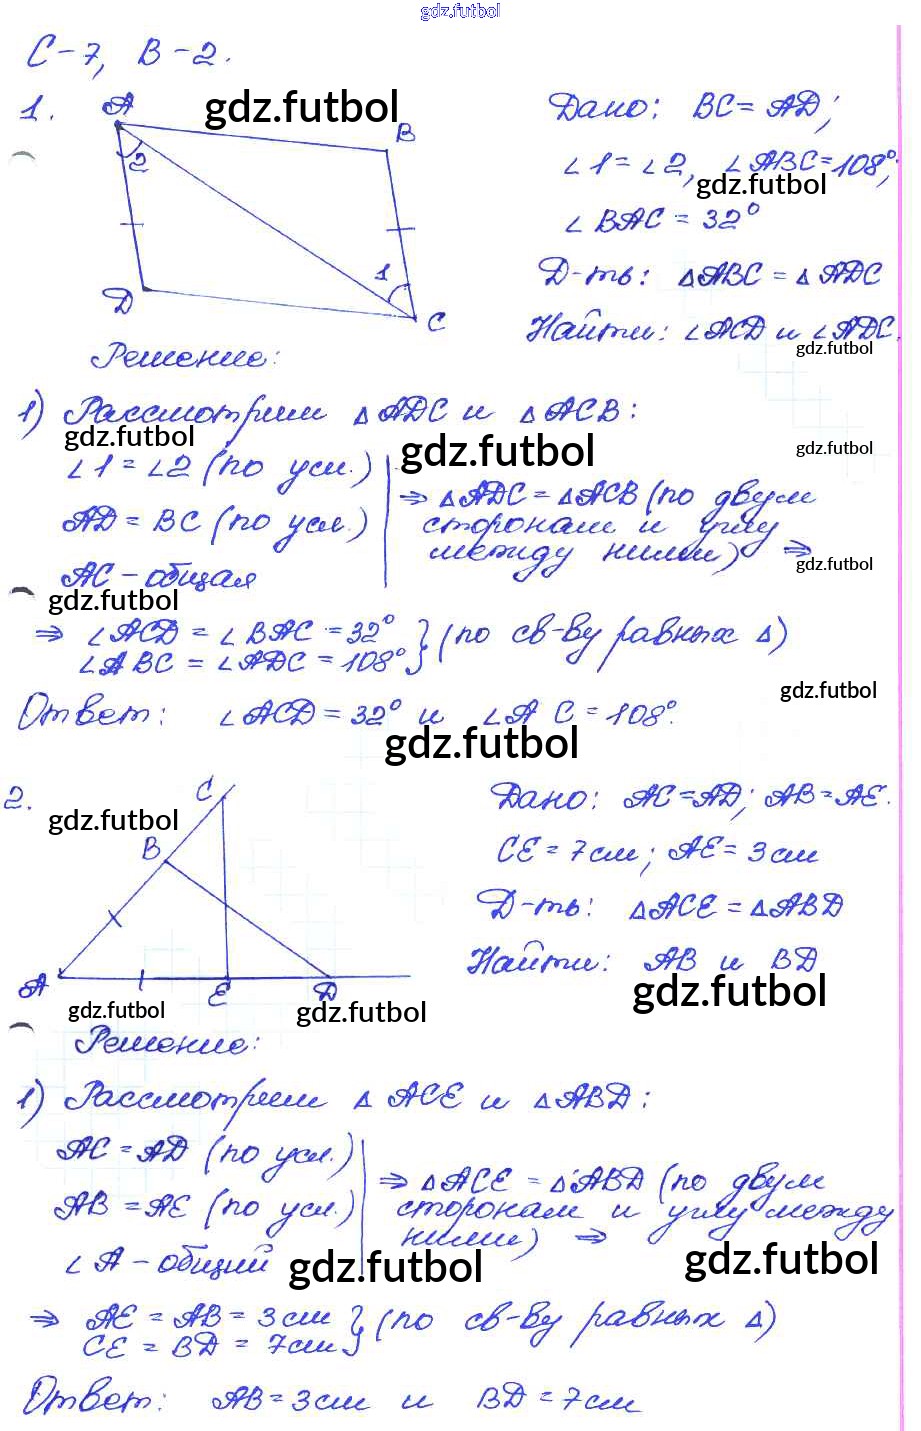 gdz.futbol
С-7, В-2.
1.
A
B
2
1
D
C
gdz.futbol
Дано: BC = AD;
∠1 = ∠2, ∠ABC = 108°;
gdz.futbol
∠BAC = 32°
Д-ть: △ABC = △ADC
Найти: ∠ACD и ∠ADC.
gdz.futbol
Решение:
1) Рассмотрим △ADC и △ACB:
gdz.futbol
gdz.futbol
gdz.futbol
∠1 = ∠2 (по усл.)
AD = BC (по усл.)
AC - общая
⇒ △ADC = △ACB (по двум
сторонам и углу
между ними) ⇒
gdz.futbol
gdz.futbol
⇒ ∠ACD = ∠BAC = 32°
∠ABC = ∠ADC = 108° } (по св-ву равных △)
gdz.futbol
Ответ: ∠ACD = 32° и ∠A C = 108°.
gdz.futbol
2.
C
B
A
E
D
gdz.futbol
Дано: AC = AD; AB = AE.
CE = 7см; AE = 3см
Д-ть: △ACE = △ABD
Найти: AB и BD
gdz.futbol
gdz.futbol
gdz.futbol
Решение:
1) Рассмотрим △ ACE и △ABD:
AC = AD (по усл.)
AB = AE (по усл.)
∠A - общий
⇒ △ACE = △ABD (по двум
сторонам и углу между
ними) ⇒
gdz.futbol
gdz.futbol
⇒ AE = AB = 3см
CE = BD = 7см } (по св-ву равных △)
Ответ: AB = 3см и BD = 7см